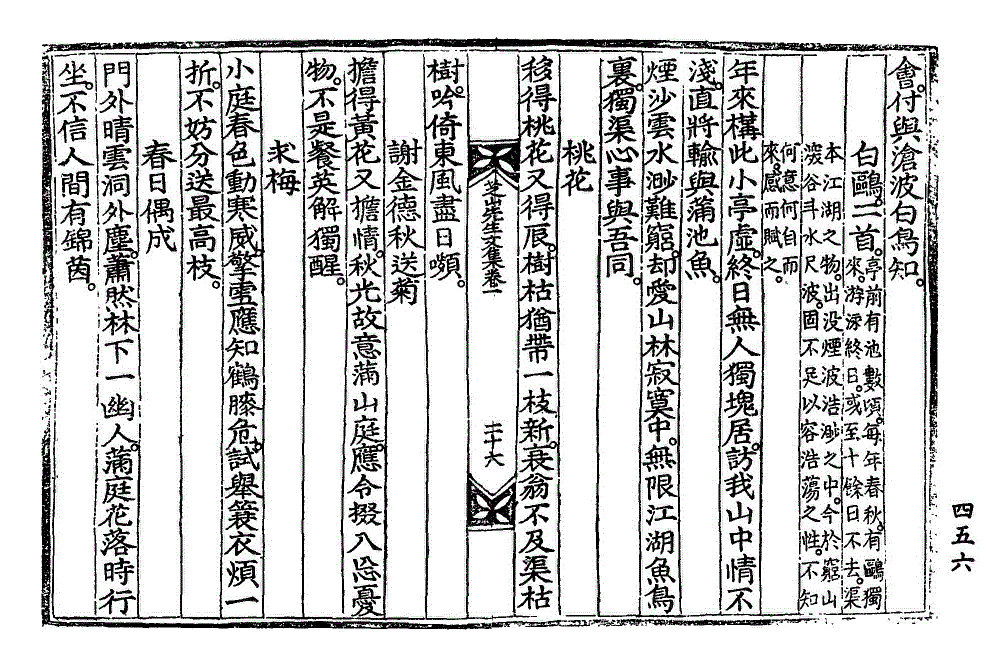 會。付與滄波白鳥知。
白鷗。二首。亭前有池數頃。每年春秋。有鷗獨
來。游泳終日。或至十餘日不去。渠
本江湖之物。出没煙波浩渺之中。今於窮山
濊谷斗水尺波。固不足以容浩蕩之性。不知
何意何自而
來。感而賦之。
年來構此小亭虛。終日無人獨塊居。訪我山中情不
淺。直將輸與滿池魚。
煙沙雲水渺難窮。却愛山林寂寞中。無限江湖魚鳥
裏。獨渠心事與吾同。
桃花
移得桃花又得辰。樹枯猶帶一枝新。衰翁不及渠枯
芝山先生文集卷一
二十六
樹。吟倚東風盡日嚬。
謝金德秋送菊
擔得黃花又擔情。秋光故意滿山庭。應令掇入忘憂
物。不是餐英解獨醒。
求梅
小庭春色動寒威。擎雪應知鶴膝危。試舉簑衣煩一
折。不妨分送最高枝。
春日偶成
門外晴雲洞外塵。蕭然林下一幽人。滿庭花落時行
坐。不信人間有錦茵。
四五六